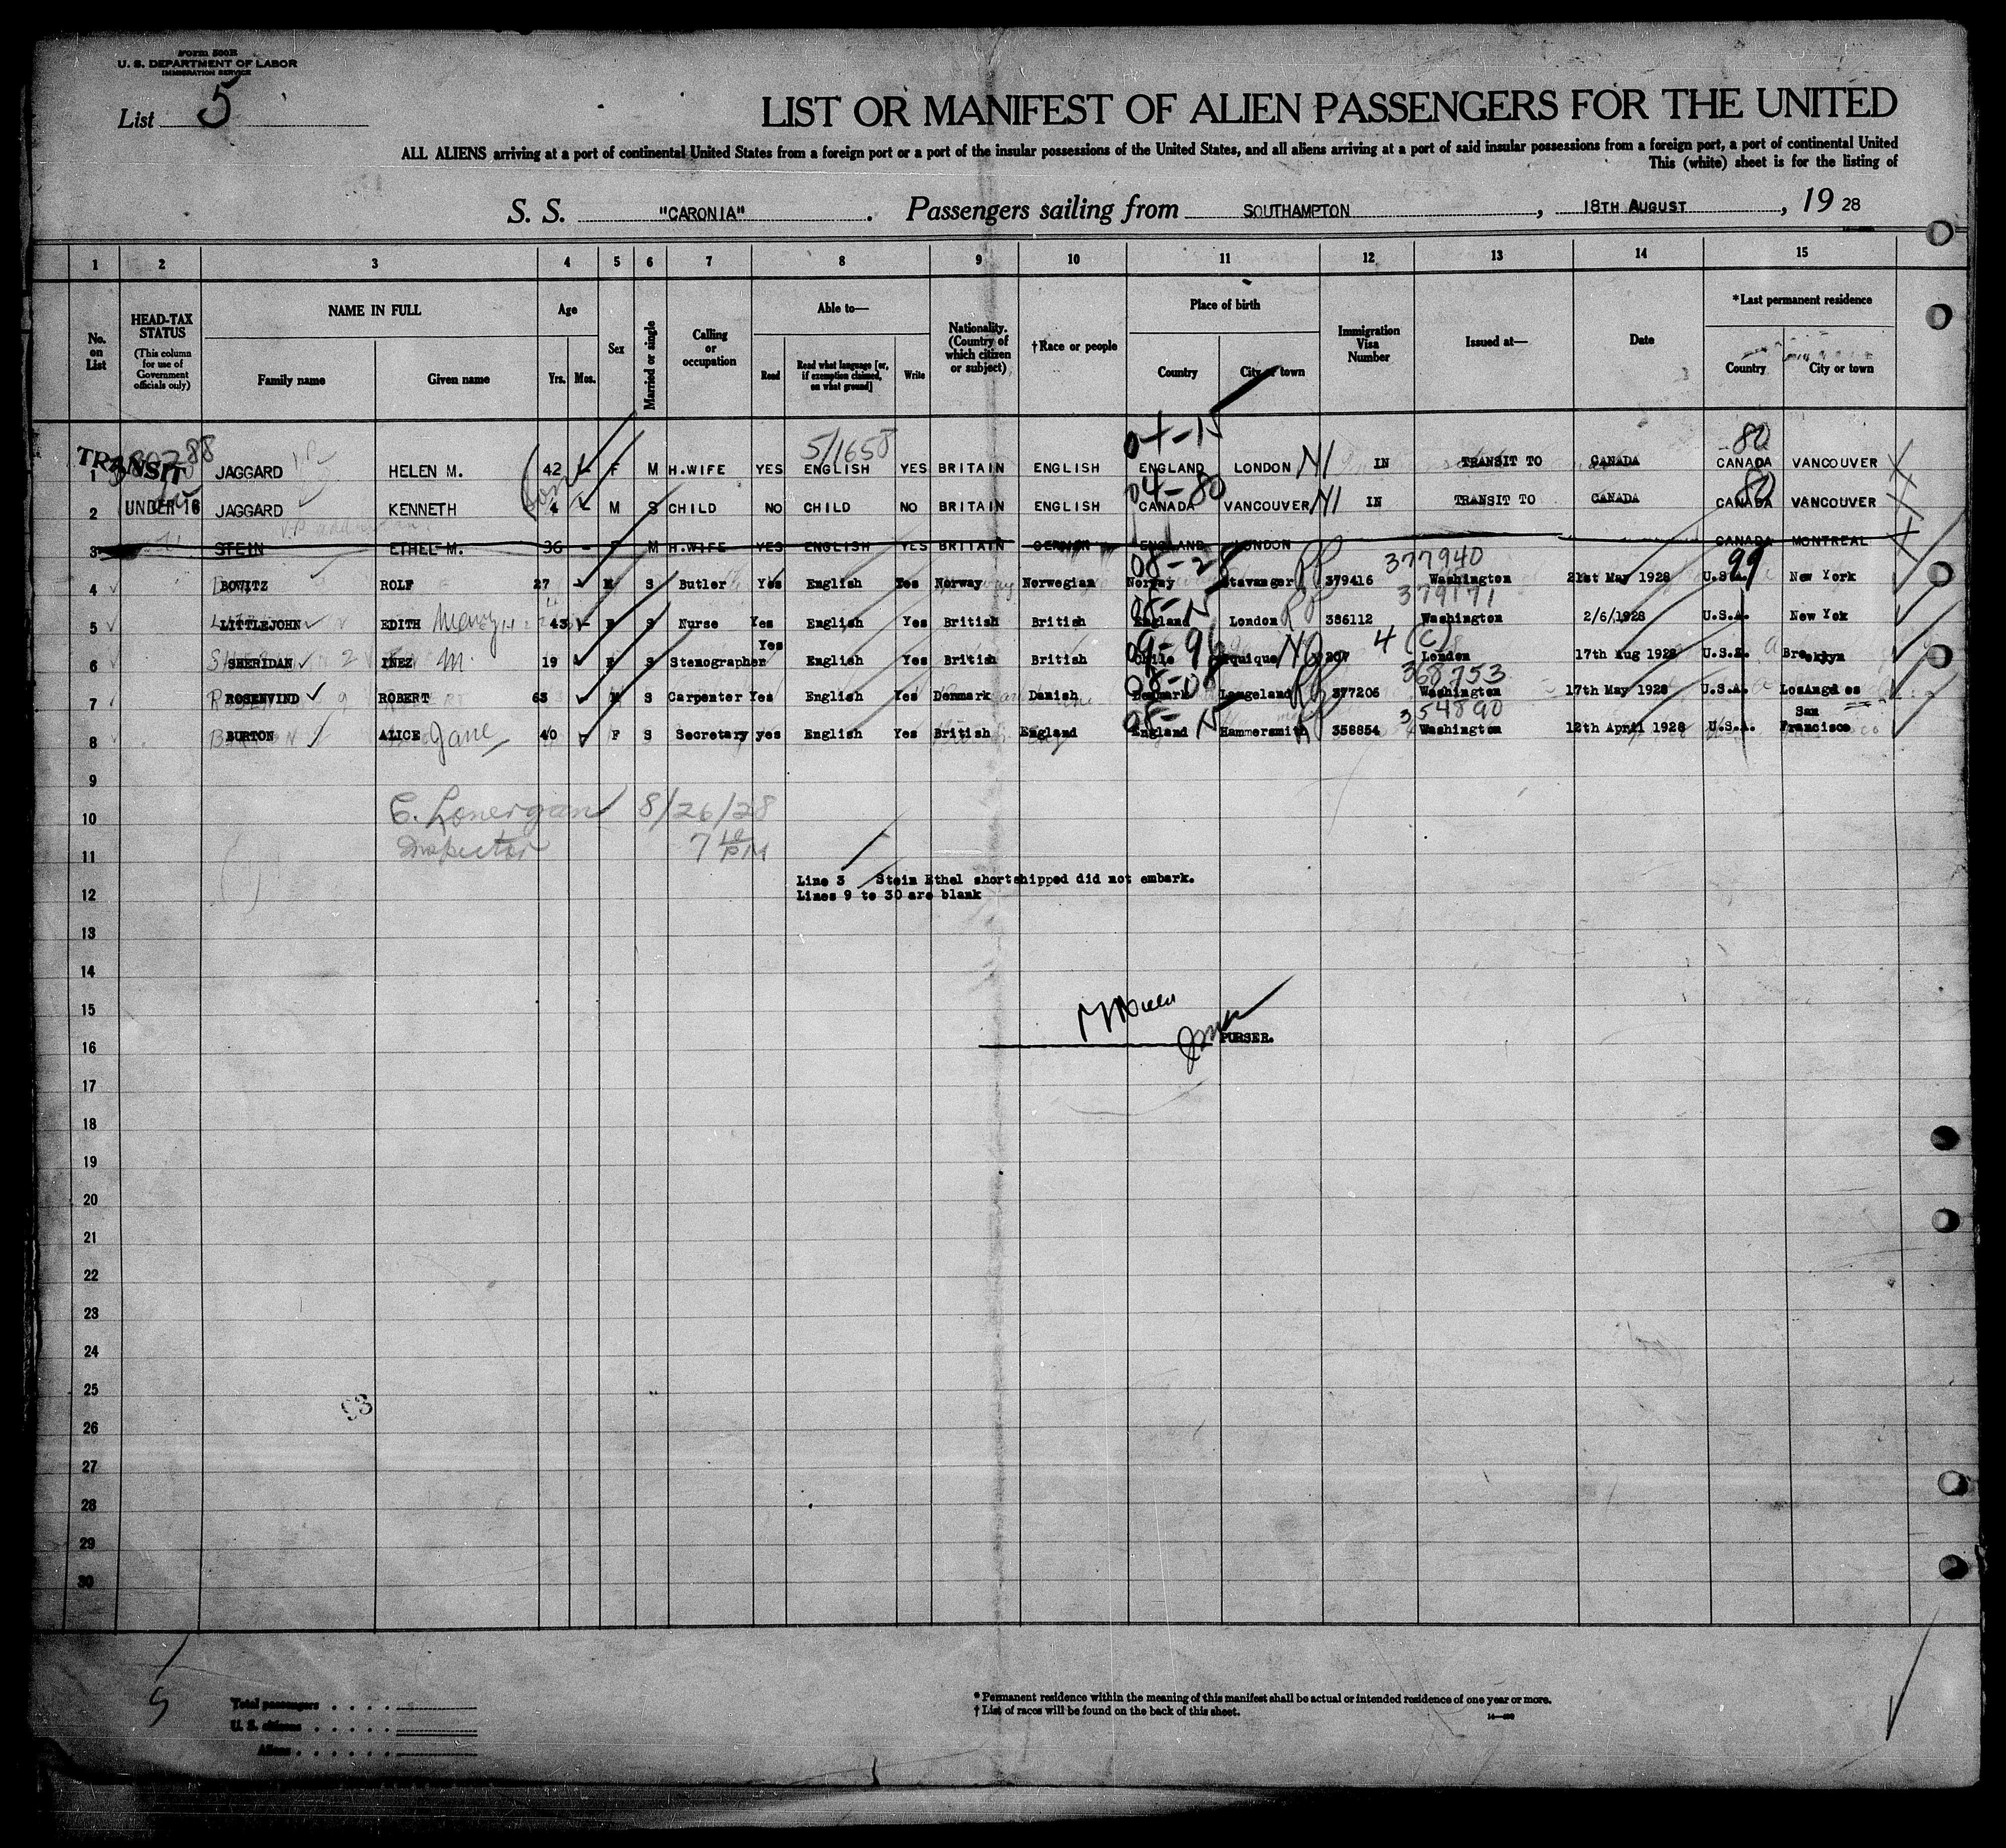 Form 500B
U. S. DEPARTMENT OF LABOR
IMMIGRATION SERVICE
List 5
LIST OR MANIFEST OF ALIEN PASSENGERS FOR THE UNITED
ALL ALIENS arriving at a port of continental United States from a foreign port or a port of the insular possessions of the United States, and all aliens arriving at a port of said insular possessions from a foreign port, a port of continental United
This (white) sheet is for the listing of
S. S. "CARONIA". Passengers sailing from SOUTHAMPTON, 18TH AUGUST, 19 28
1 2 3 4 5 6 7 8 9 10 11 12 13 14 15
No. on List
HEAD-TAX STATUS
(This column for use of Government officials only)
NAME IN FULL
Family name Given name
Age
Yrs. Mos.
Sex
Married or single
Calling or occupation
Able to—
Read Read what language [or, if exemption claimed, on what ground] Write
Nationality. (Country of which citizen or subject)
†Race or people
Place of birth
Country City or town
Immigration Visa Number
Issued at—
Date
*Last permanent residence
Country City or town
5/1658 80
1 TRANSIT JAGGARD HELEN M. 42 F M H.WIFE YES ENGLISH YES BRITAIN ENGLISH ENGLAND LONDON IN TRANSIT TO CANADA CANADA VANCOUVER
04-80 80
2 UNDER 16 JAGGARD KENNETH 4 M S CHILD NO CHILD NO BRITAIN ENGLISH CANADA VANCOUVER IN TRANSIT TO CANADA CANADA VANCOUVER
3 STEIN ETHEL M. 36 - F M H.WIFE YES ENGLISH YES BRITAIN GERMAN ENGLAND LONDON CANADA MONTREAL
08-28 377940 99
4 BOVITZ ROLF 27 M S Butler Yes English Yes Norway Norwegian Norway Stavanger 379416 Washington 21st May 1928 U.S.A. New York
08-15 379171
5 LITTLEJOHN EDITH Mary 43 F S Nurse Yes English Yes British British England London 386112 Washington 2/6/1928 U.S.A. New Yok
09-96 4 (C)
6 SHERIDAN INEZ M. 19 F S Stenographer Yes English Yes British British Chile Iquique 207 London 17th Aug 1928 U.S.A. Brooklyn
08-08 368753
7 ROSENVIND ROBERT 63 M S Carpenter Yes English Yes Denmark Danish Denmark Langeland 377206 Washington 17th May 1928 U.S.A. LosAngeles
08-15 354890
8 BURTON ALICE Jane 40 F S Secretary yes English Yes British England England Hammersmith 358854 Washington 12th April 1928 U.S.A. San Francisco
9
10 E. Lonergan 8/26/28
11 Inspector 7 PM
Line 3 Stein Ethel shortshipped did not embark.
12 Lines 9 to 30 are blank
13
14
15
16 PURSER.
17
18
19
20
21
22
23
24
25
26
27
28
29
30
Total passengers
U. S. citizens
Aliens
* Permanent residence within the meaning of this manifest shall be actual or intended residence of one year or more.
† List of races will be found on the back of this sheet.